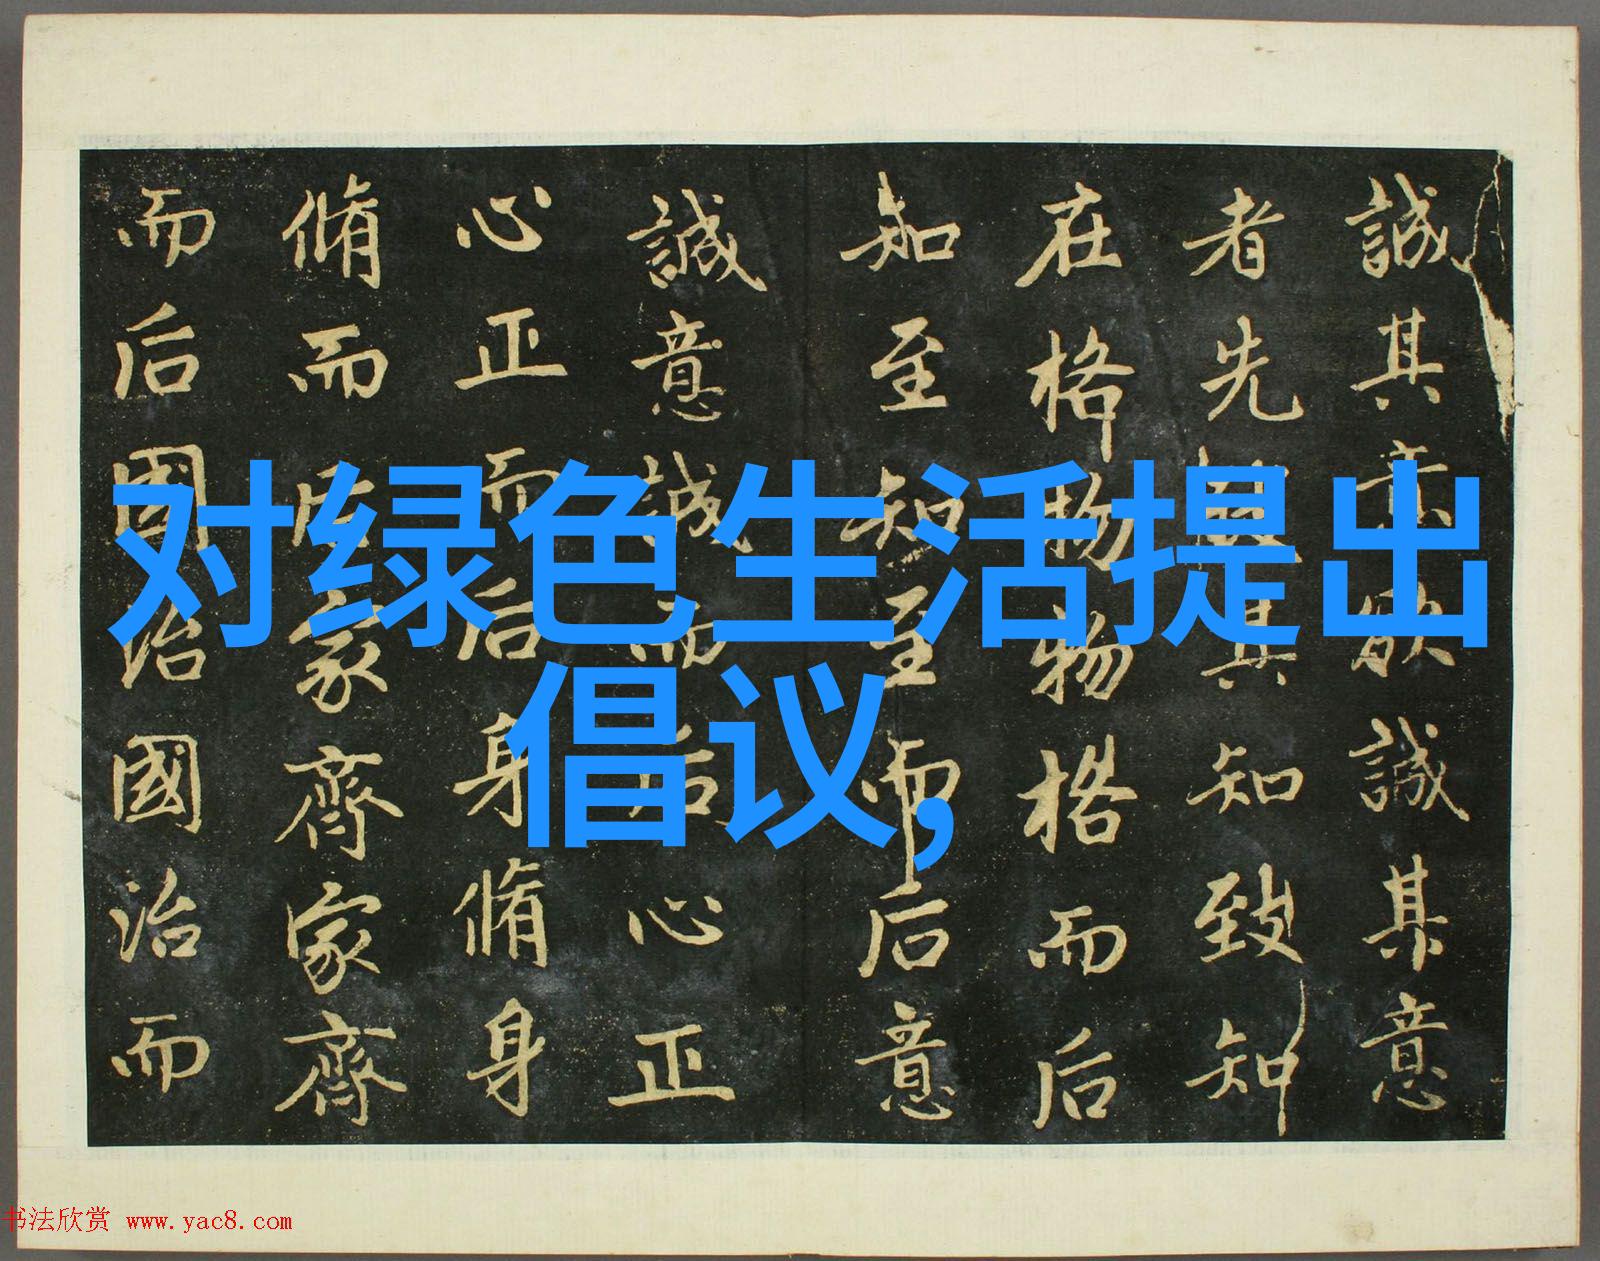 对绿色生活提出
倡议,
誠其意欲誠其意
者先致其知致知
在格物物格而后
知至知至而后意
誠意誠而后心正
心正而后身脩身
脩而后家齊家齊
而后國治國治而
书法欣赏 www.yac8.com